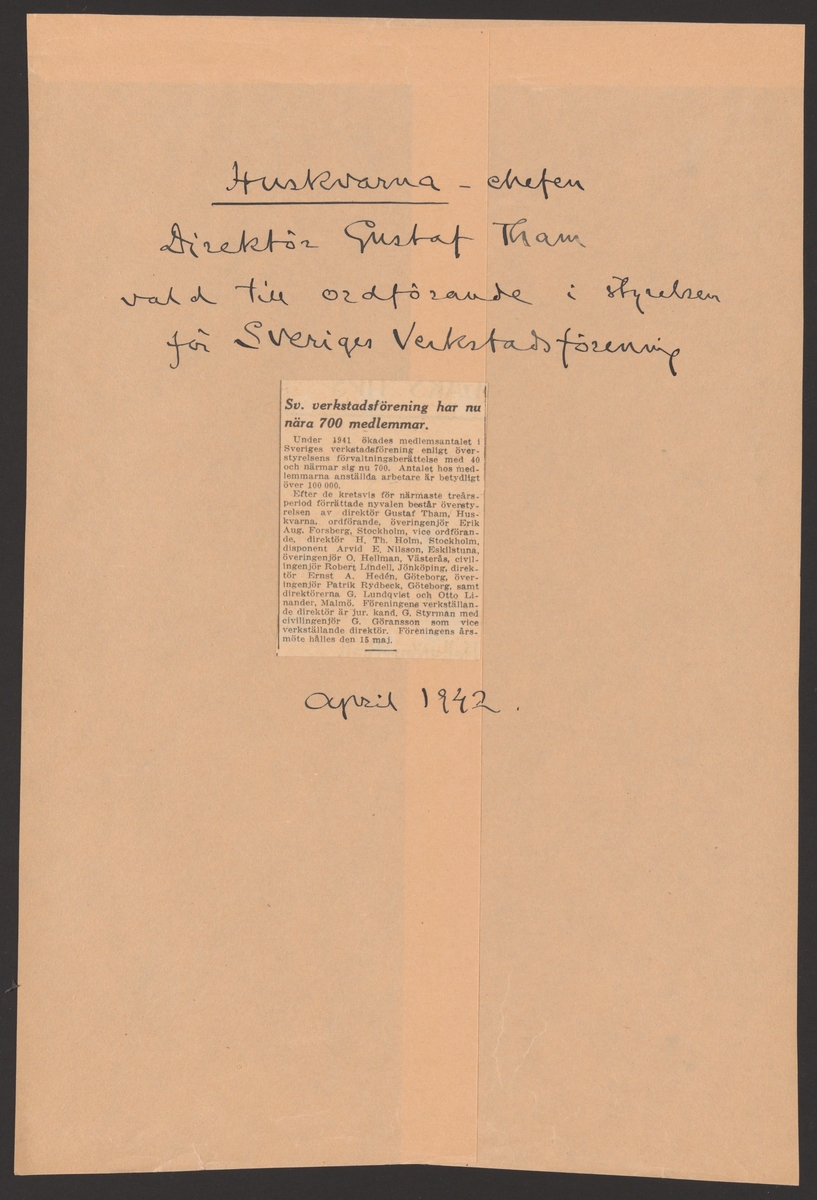 Huskvarna - chefen
Direktör Gustaf Tham
vald till ordförande i styrelsen
för Sveriges Verkstadsförening
Sv. verkstadsförening har nu
nära 700 medlemmar.
Under 1941 ökades medlemsantalet i
Sveriges verkstadsförening enligt över-
styrelsens förvaltningsberättelse med 40
och närmar sig nu 700. Antalet hos med-
lemmarna anställda arbetare är betydligt
över 100 000.
Efter de kretsvis för närmaste treårs-
period förrättade nyvalen består översty-
relsen av direktör Gustaf Tham, Hus-
kvarna, ordförande, överingenjör Erik
Aug. Forsberg, Stockholm, vice ordföran-
de, direktör H. Th. Holm, Stockholm,
disponent Arvid E. Nilsson, Eskilstuna,
överingenjör O. Hellman, Västerås, civil-
ingenjör Robert Lindell, Jönköping, direk-
tör Ernst A. Hedén, Göteborg, över-
ingenjör Patrik Rydbeck, Göteborg, samt
direktörerna G. Lundqvist och Otto Li-
nander, Malmö. Föreningens verkställan-
de direktör är jur. kand. G. Styrman med
civilingenjör G. Göransson som vice
verkställande direktör. Föreningens års-
möte hålles den 15 maj.
April 1942.